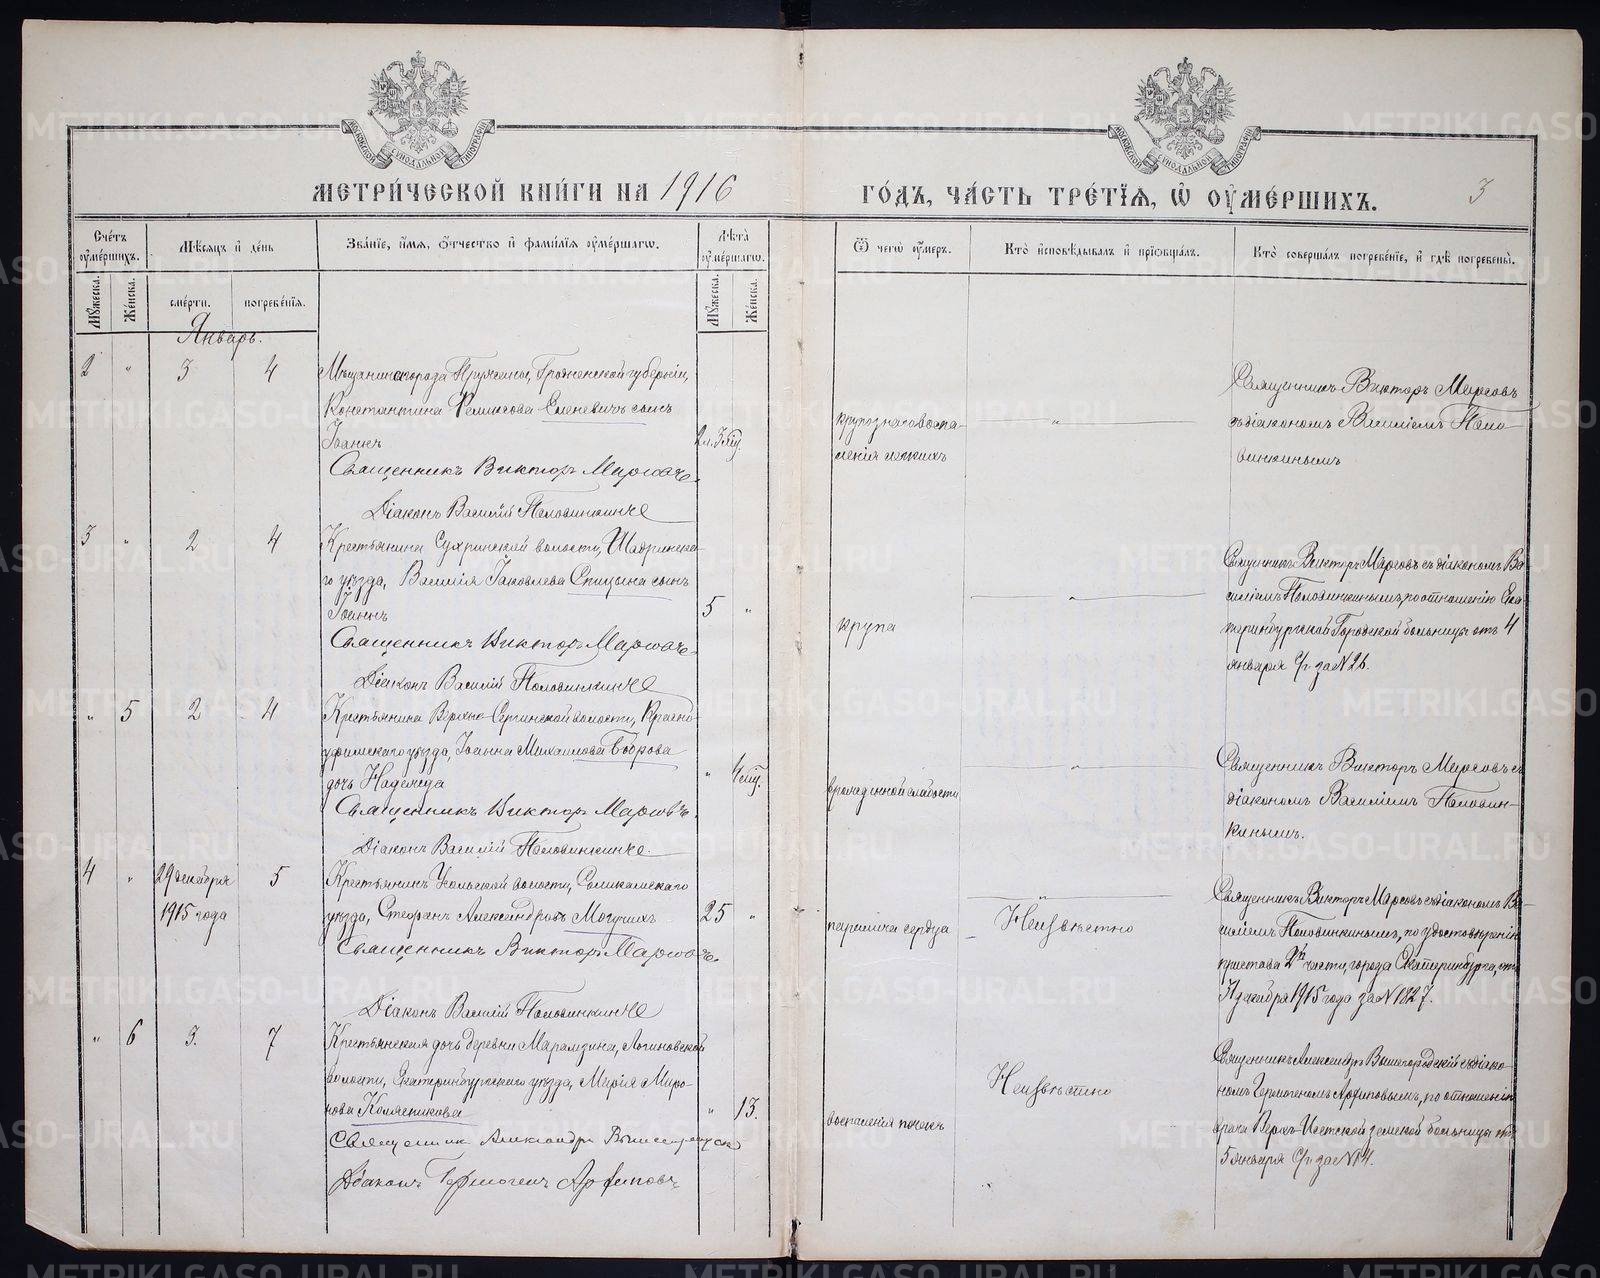 МОСКОВСКОЙ СѴНОДАЛЬНОЙ ТИПОГРАФІИ
МОСКОВСКОЙ СѴНОДАЛЬНОЙ ТИПОГРАФІИ
МЕТРИ́ЧЕСКОЙ КНИ́ГИ НА 1916
ГО́ДЪ, ЧА́СТЬ ТРЕ́ТІѦ, Ѡ҆ ОУ҆МЕ́РШИХЪ. 3
Сче́тъ оу҆ме́ршихъ.
Мѣ́сяцъ и҆ де́нь
Зва́ніе, и҆́мѧ, ѻ҆́тчество и҆ фамѝлїѧ оу҆ме́ршагѡ.
Лѣ́та оу҆ме́ршагѡ.
Ѿ чегѡ̀ оу҆́меръ.
Кто̀ и҆сповѣ́дывалъ и҆ прїѡбща́лъ.
Кто̀ соверша́лъ погребе́нїе, и҆ гдѣ̀ погребены̀.
Мꙋ́жеска.
Же́нска.
сме́рти.
погребе́нїѧ.
Мꙋ́жеска.
Же́нска.
Январь.
2 " 3 4
Мѣщанина города Пружаны, Гродненской губерніи,
Константина
Сменевичъ сынъ
Іоаннъ
2 л. 3 мѣс.
Священникъ Викторъ Марсовъ.
Діаконъ Василій Половинкинъ
крупознаго воспа-
ленія легкихъ
"
Священникъ Викторъ Марсовъ
съ діакономъ Василіемъ Поло-
винкинымъ
3 " 2 4
Крестьянина Сухринской волости, Шадринска-
го уѣзда, Василія Іаковлева Спицына сынъ
Іоаннъ
5 "
Священникъ Викторъ Марсовъ.
Діаконъ Василій Половинкинъ
крупа
"
Священникъ Викторъ Марсовъ съ діакономъ Ва-
силіемъ Половинкинымъ, по отношенію Ека-
теринбургской Городской больницы отъ 4
января с/г. за № 26.
" 5 2 4
Крестьянина Верхно-Сергинской волости, Красно-
уфимскаго уѣзда, Іоанна Михаилова Боброва
дочь Надежда
" 4 мѣс.
Священникъ Викторъ Марсовъ.
Діаконъ Василій Половинкинъ
врожденной слабости
"
Священникъ Викторъ Марсовъ съ
діакономъ Василіемъ Половин-
кинымъ.
4 " 29 декабря 5
1915 года
Крестьянинъ Усольской волости, Соликамскаго
уѣзда, Стефанъ Александровъ Могучихъ
25 "
Священникъ Викторъ Марсовъ.
Діаконъ Василій Половинкинъ
паралича сердца
"
Неизвѣстно
Священникъ Викторъ Марсовъ съ діакономъ Ва-
силіемъ Половинкинымъ, по удостовѣренію
пристава 2й части, города Екатеринбурга, отъ
31 декабря 1915 года за № 1827.
" 6 3. 7
Крестьянская дочь деревни Марамзина, Логиновской
волости, Екатеринбургскаго уѣзда, Марія Миро-
нова Колясникова
" 13.
Священникъ Александръ Вышегородскій
Діаконъ Гермогенъ Арефиновъ
воспаленія почекъ
Неизвѣстно
Священникъ Александръ Вышегородскій съ діако-
номъ Гермогеномъ по отношенію
врача Верхъ-Исетской земской больницы отъ
5 января с/г. за № 14.
METRIKI.GASO-URAL.RU